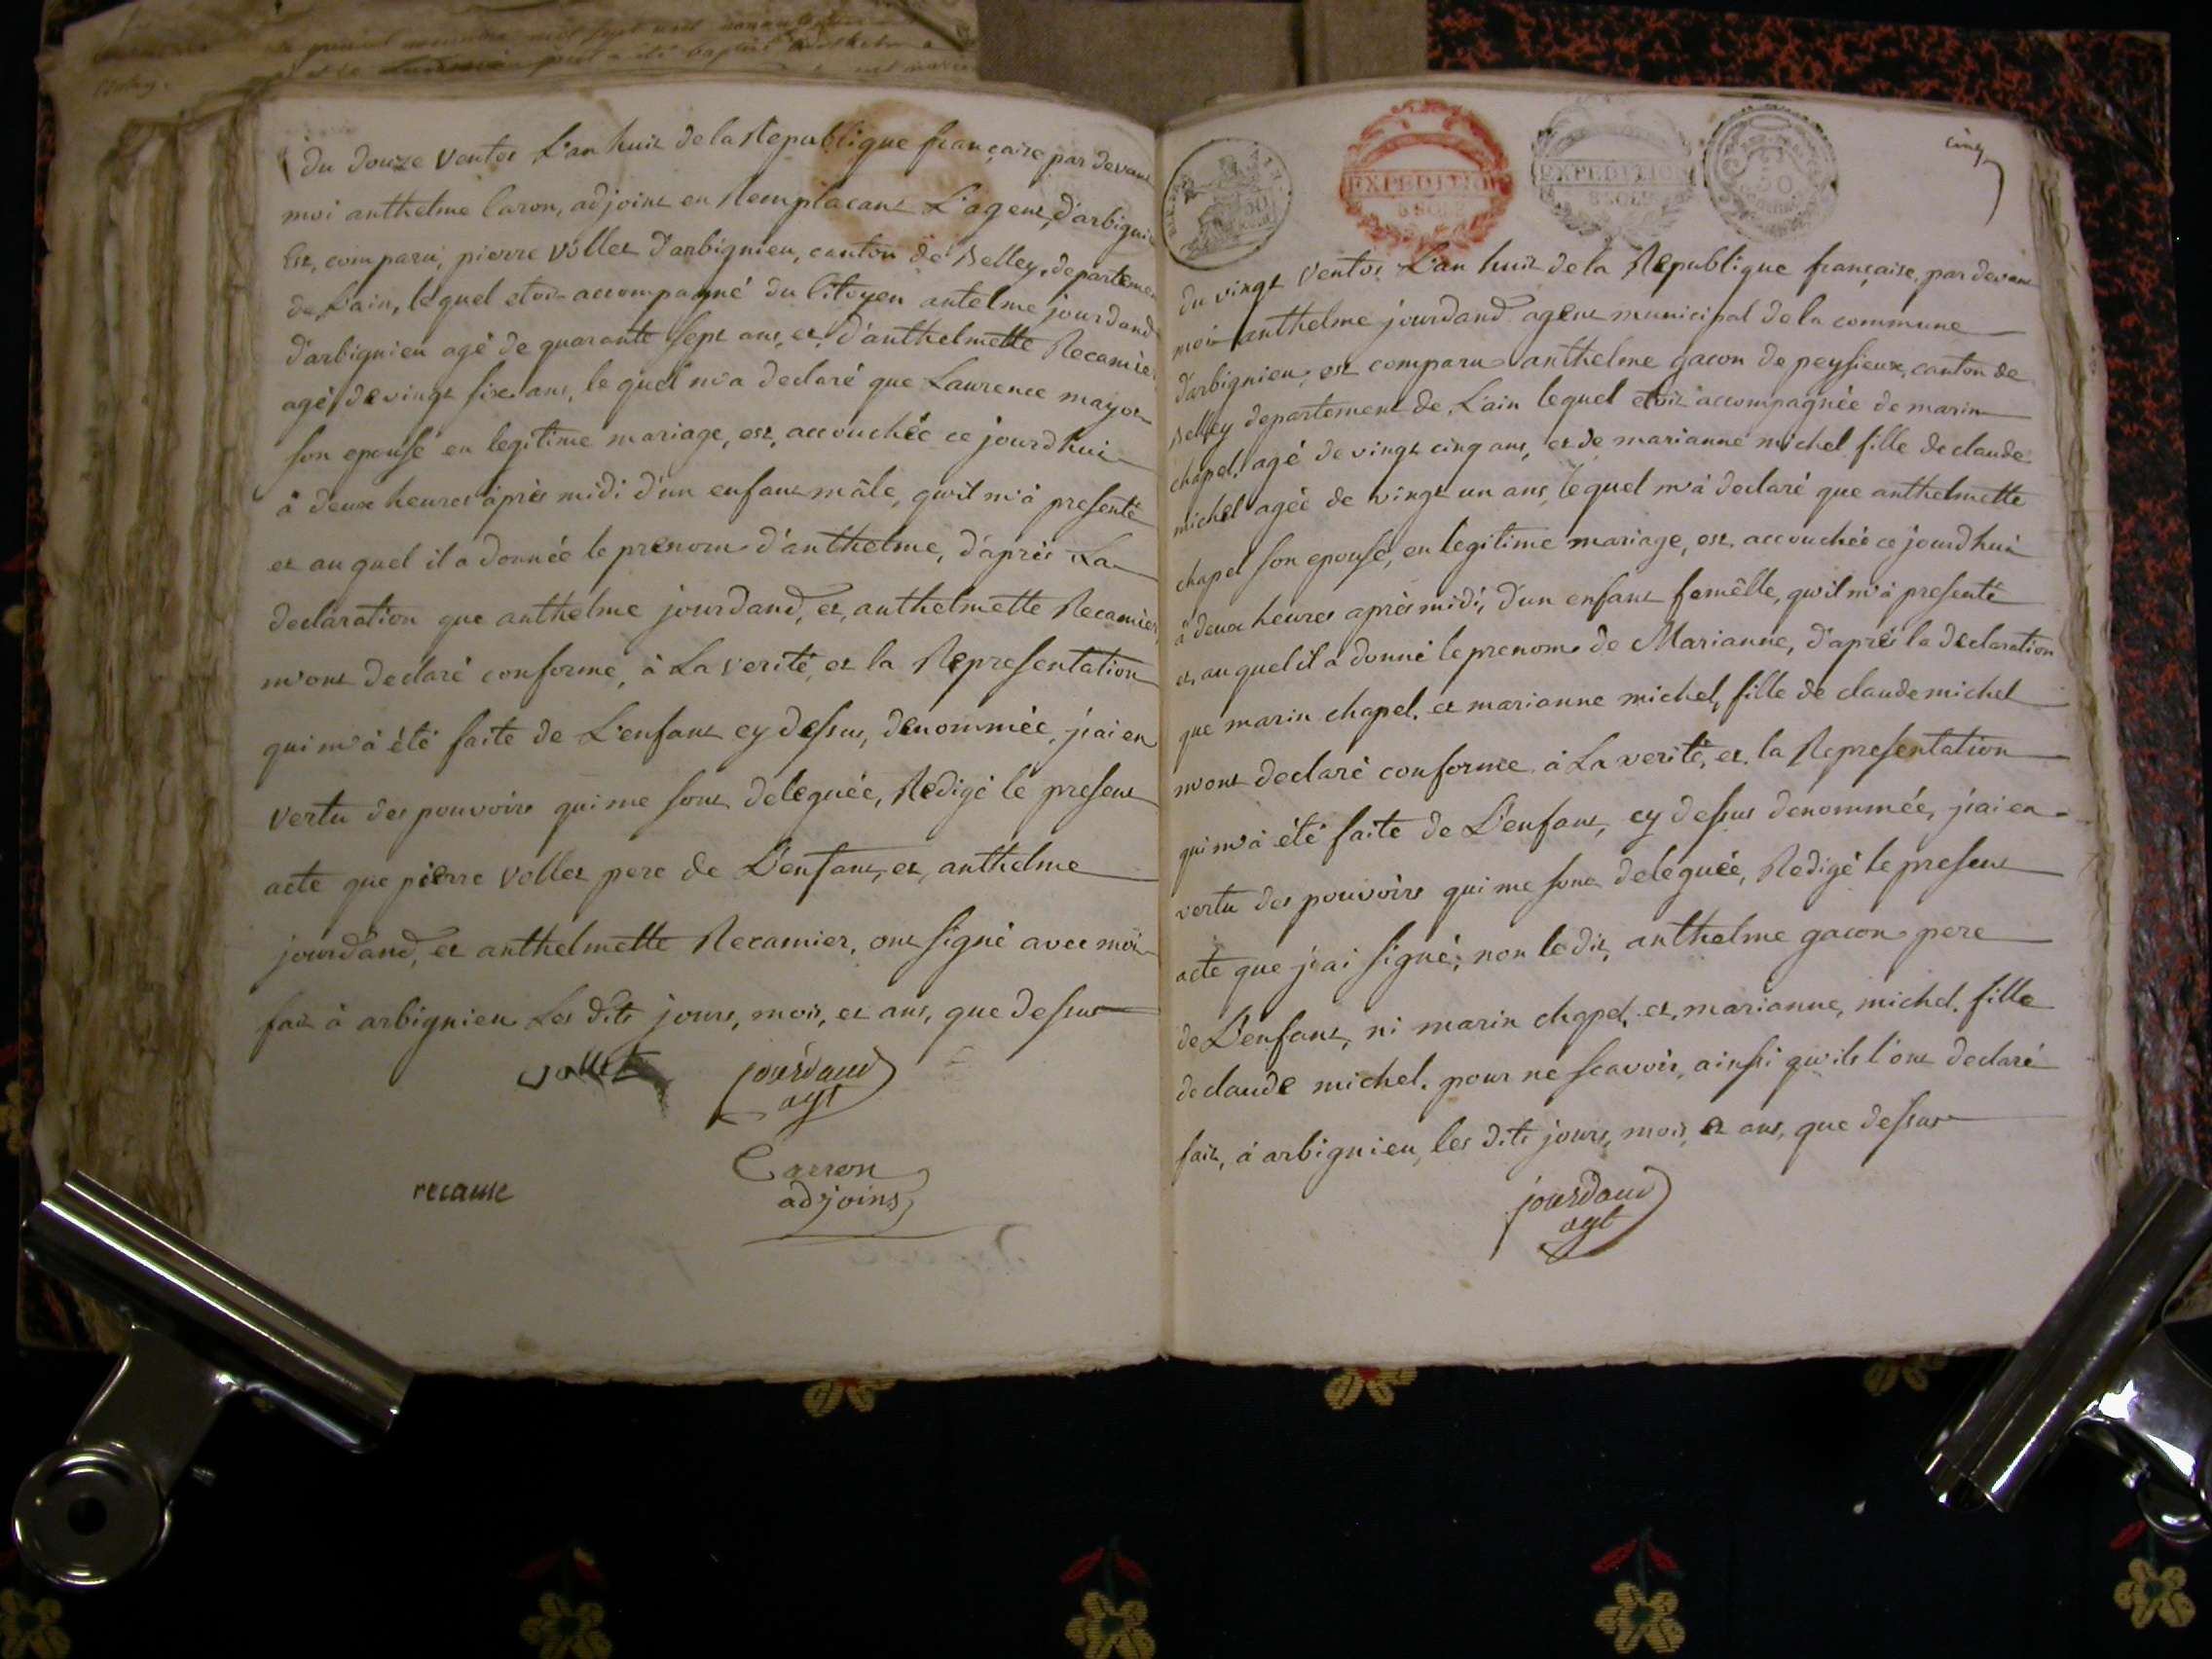 du douze ventos L'an huit de la Republique française par devant
moi anthelme Caron, adjoint en Remplacant L'agent, d'arbignieu
Est, comparu, pierre vollet d'arbignieu, canton de Belley, departement
de L'ain, lequel etoit accompagné du Citoyen antelme jourdand
d'arbignieu agé de quarante sept ans, et, d'anthelmette Recamier
agé, de vingt six ans, lequel m'a declaré que Laurence mayot
son epouse en legitime mariage, est, accouchée ce jourd'hui
à deux heures après midi d'un enfant mâle, qu'il m'à presenté
et auquel il a donnée le prenom d'anthelme, d'après La
declaration que anthelme jourdand, et, anthelmette Recamier
m'ont declaré conforme, à La verité, et la Representation
qui m'à été faite de L'enfant cy dessus, denommée, j'ai en
vertu des pouvoirs qui me sont deleguée, Redigé le present
acte que pierre vollet pere de L'enfant, et, anthelme
jourdand, et anthelmette Recamier, ont signé avec moi
fait à arbignieu Les dits jours, mois, et ans, que dessus
vollet jourdand
agt
Carron
recamie adjoint
cinq
EXPEDITION
8 SOLS
EXPEDITION
8 SOLS
50
du vingt ventos L'an huit de la Republique française, par devant
moi anthelme jourdand agent municipal de la commune
d'arbignieu, est comparu anthelme gacon de peysieux, canton de
Belley departement de L'ain lequel etoit accompagnée de marin
chapel, agé de vingt cinq ans, et de marianne michel fille de claude
michel agée de vingt un ans, lequel m'à declaré que anthelmette
chapel son epouse, en legitime mariage, est accouchée ce jourd'hui
à deux heures après midi, d'un enfant femêlle, qu'il m'à presenté
et, auquel il a donné le prenom de Marianne, d'après la declaration
que marin chapel, et marianne michel, fille de claude michel
m'ont declaré conforme à La verité, et, la Representation
qui m'à été faite de L'enfant, cy dessus denommée, j'ai en
vertu des pouvoirs qui me sont deleguée, Redigé le present
acte que j'ai signé, non le dit, anthelme gacon pere
de L'enfant, ni marin chapel, et, marianne, michel, fille
de claude michel, pour ne scavoir, ainsi qu'ils l'ont declaré
fait, à arbignieu, les dits jours, mois, et ans, que dessus
jourdand
agt